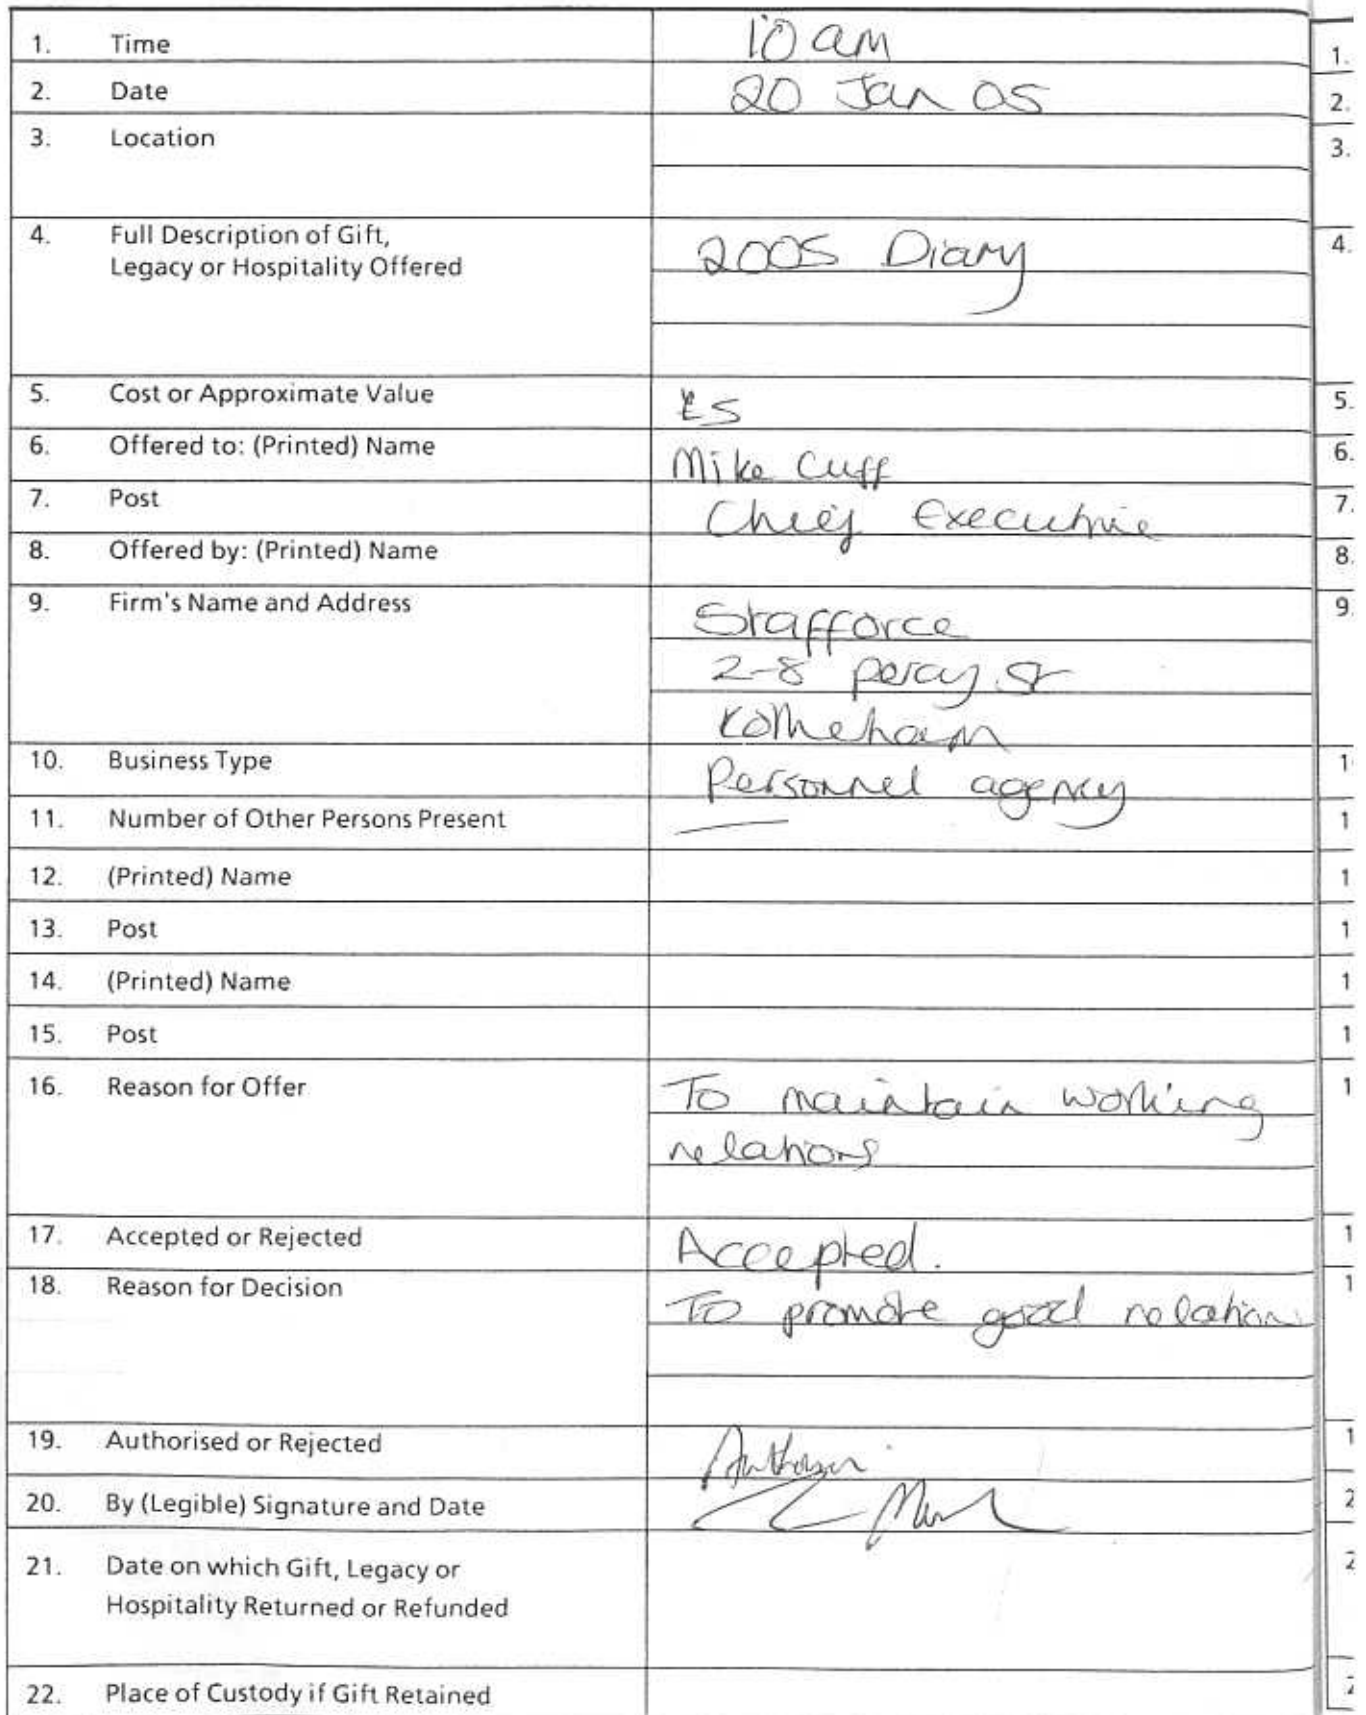 1. Time 10 am
2. Date 20 Jan 05
3. Location
4. Full Description of Gift,
Legacy or Hospitality Offered 2005 Diary
5. Cost or Approximate Value £5
6. Offered to: (Printed) Name Mike Cuff
7. Post Chief Executive
8. Offered by: (Printed) Name
9. Firm's Name and Address Stafforce
2-8 Percy St
Rotherham
10. Business Type Personnel agency
11. Number of Other Persons Present —
12. (Printed) Name
13. Post
14. (Printed) Name
15. Post
16. Reason for Offer To maintain working
relations
17. Accepted or Rejected Accepted.
18. Reason for Decision To promote good relation
19. Authorised or Rejected
20. By (Legible) Signature and Date
21. Date on which Gift, Legacy or
Hospitality Returned or Refunded
22. Place of Custody if Gift Retained
1.
2.
3.
4.
5.
6.
7.
8.
9